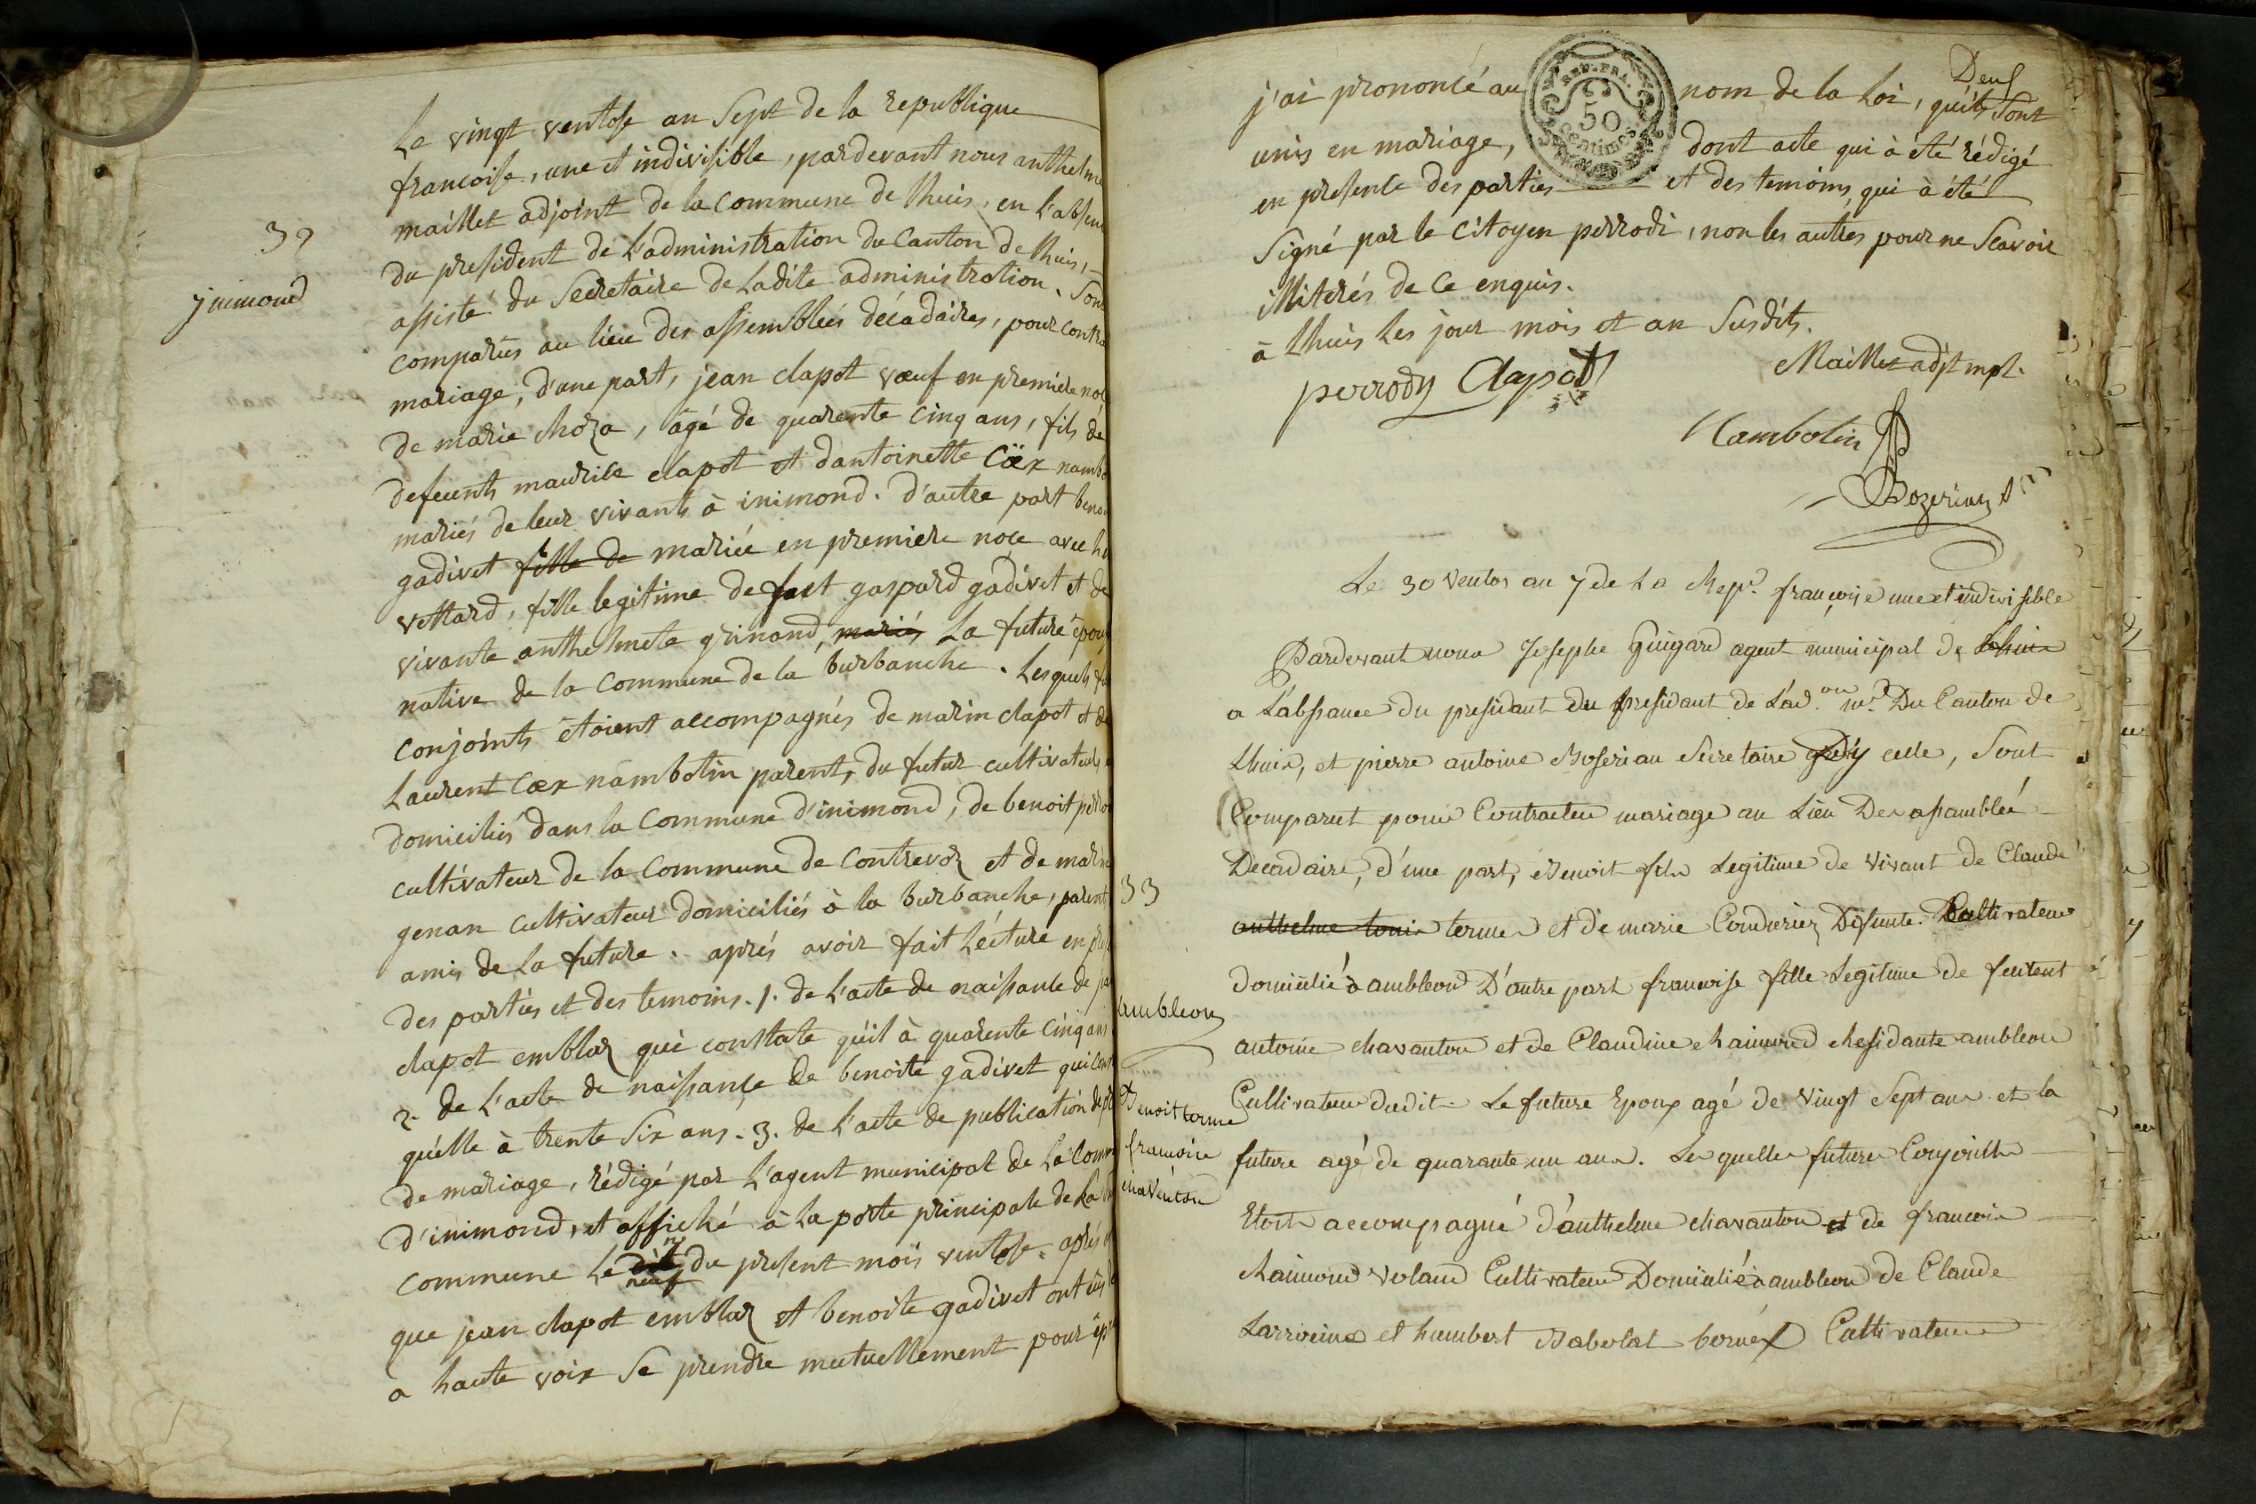 32
jnimond
Le vingt ventose an Sept de la republique
francoise, une et indivisible, pardevant nous anthelme
maillet adjoint de la commune de lhuis, en l'absen
du president de l'administration du Canton de lhuis,
assisté du Secretaire de Ladite administration. Sont
comparus au lieu des assemblées décadaires, pour contra
mariage, d'une part, jean clapot vœuf en premiere noc
de marie choza, âgé de quarente cinq ans, fils dé
defeunts maurice clapot et d'antoinette Cöex nambo
mariés de leur vivants à inimond. d'autre part beno
gadivet fille de mariée en premiere noce avec
vettard, fille legitime de gaspard gadivet et de
vivante anthelmete grinand, mariés La future épou
native de la commune de la burbanche. Lesquels
conjoints étoient accompagnés de marin clapot et de
Laurent Coex nambotin parents du futur cultivateurs
domiciliés dans la commune d'inimond, de benoit perro
cultivateur de la commune de Contrevoz et de
genan cultivateur domiciliés à la burbanche, parent
amis de la future. aprés avoir fait Lécture en
des parties et des temoins. 1. de l'acte de naissance de
clapot emblaz qui constate qu'il à quarente cinq ans
2. de l'acte de naissance de benoite gadivet qui
qu'elle à trente six ans. 3. de l'acte de publication
de mariage, rédigé par L'agent municipal de La comm
d'inimond, et affiché à la porte principale de La
commune Le neuf du present mois ventose. aprés
que jean clapot emblaz et benoite gadivet ont
a haute voix se prendre mutuellement pour
j'ai prononcé au nom de la Loi, Deuf
qu'ils sont
REP. FRA.
50
centimes
unis en mariage, dont acte qui à été rédigé
en presence des parties et des temoins, qui à été
Signé par le Citoyen perrodi, non les autres pour ne Scavoir
illiterés de ce enquis.
à Lhuis les jour mois et an susdits.
perrody Clapot
Maillet adjt mpl.
Nambotin
Bozerian
33
Le 30 ventos an 7 de La Repe. françoise une et indivisible
Pardevant nous Josephe Guigard agent municipal de Lhuis
a L'absance du presidant du presidant de L'ad.on mle. Du Canton de
Lhuis, et pierre antoine Boserian Secretaire celle, Sont
Comparut pour Contracter mariage au Lieu Des assamblée
Decadaire, d'une part, Benoit fils Legitime de vivant de Claude
anthelme termes et de marie Coudurier Defunte. Cultivateur
Domicilié à ambleon D'autre part francoise fille Legitime de
antoine chavanton et de Claudine chaimond Residante ambleon
Cultivateur dudit. Le future Epoux agé de vingt Sept ans et la
future agé de quarante un ans. Les quelles futures Conjoints
Etoits accompagné d'anthelme chavanton et de francois
chaimond voland Cultivateur Domicilié à ambleon de Claude
et humbert Cultivateurs
ambleon
Benoit terme
francoise
chaventon